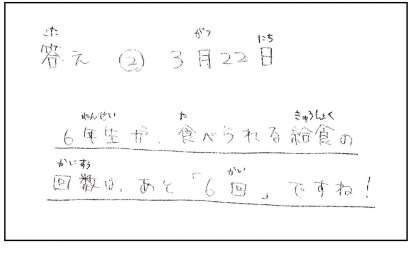 こた がつ にち
答え ② 3月22日
ねんせい た きゅうしょく
6年生が、食べられる給食の
かいすう かい
回数は、あと「6回」ですね!